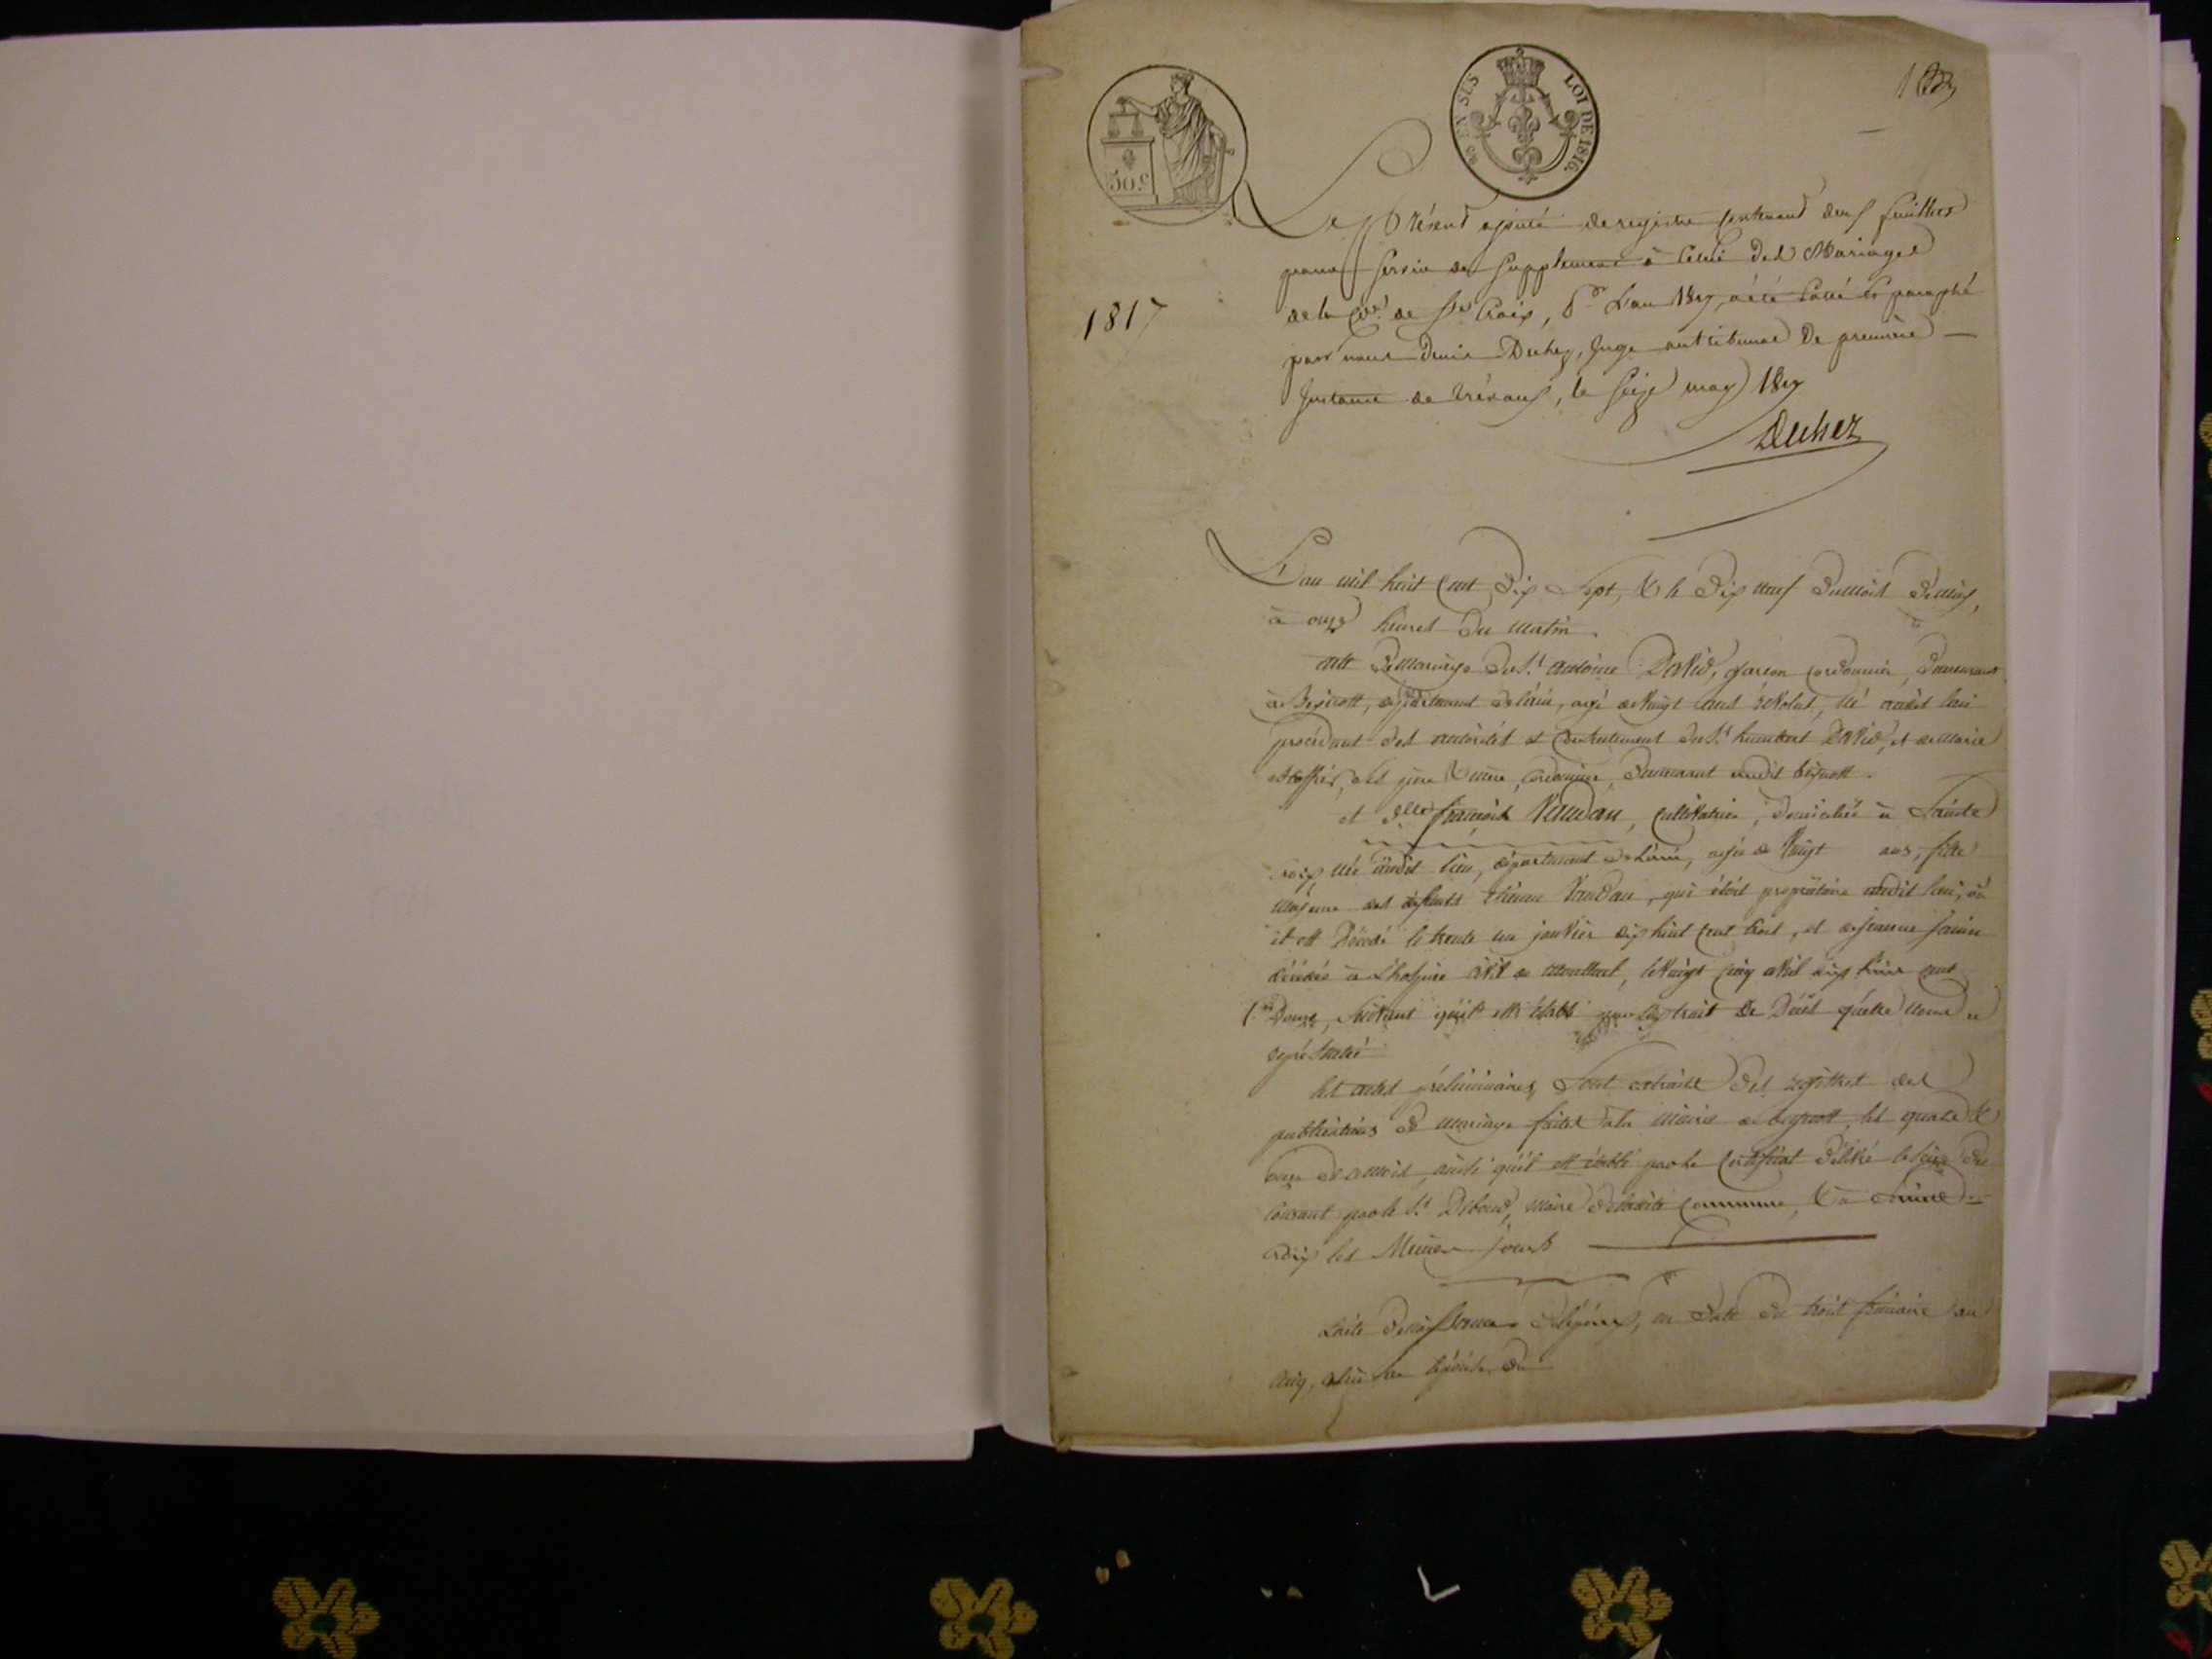 50.c
EN SUS
LOI DE 1816.
Le présent ajouté de registre contenant deux feuilles
pour servir de supplement à celui des Mariages
1817
de la Cne. de Ste Croix, pr. L'an 1817, a été cotté et paraphé
par nous Denis Duhez, Juge au tribunal De première
Instance de Trévoux, le Seize may 1817
Duhez
L'an mil huit cent Dix Sept, & le Dix neuf Dumois Demay,
à onze heures Du matin.
acte Demariage du Sr. antoine David, garçon cordonnier, Demeurant
département delain, agé de Vingt ans révolus, né audit lieu
procédant des autorités et Consentement du Sr. humbert David, et de Marie
ses père & mère, cordonnier, Demeurant audit
et Dlle françoise Vaudan, Cultivatrice, Domiciliée à Sainte
Croix née audit lieu, département de Lain, agée de Vingt ans, fille
des défunts étienne Vaudan, qui étoit propriétaire audit lieu, où
il est Décédé le trente un janvier dix huit cent trois, et de jeanne
décédée à L'hospice civil de montluel, le Vingt cinq avril dix huit cent
Douze, Suivant qu'il est établi par Lextrait De Décès qu'elle nous a
représenté
les actes préliminaires Sont extraits Des registres des
publications de mariage faites à la mairie de les quatre &
onze de ce mois, ainsi qu'il est établi par le Certificat Délivré le seize Du
Courant par le Sr. maire de ladite Commune, & à Sainte
Croix les Mêmes jours
Lacte Denaissance en Date Du trois frimaire an
cinq,